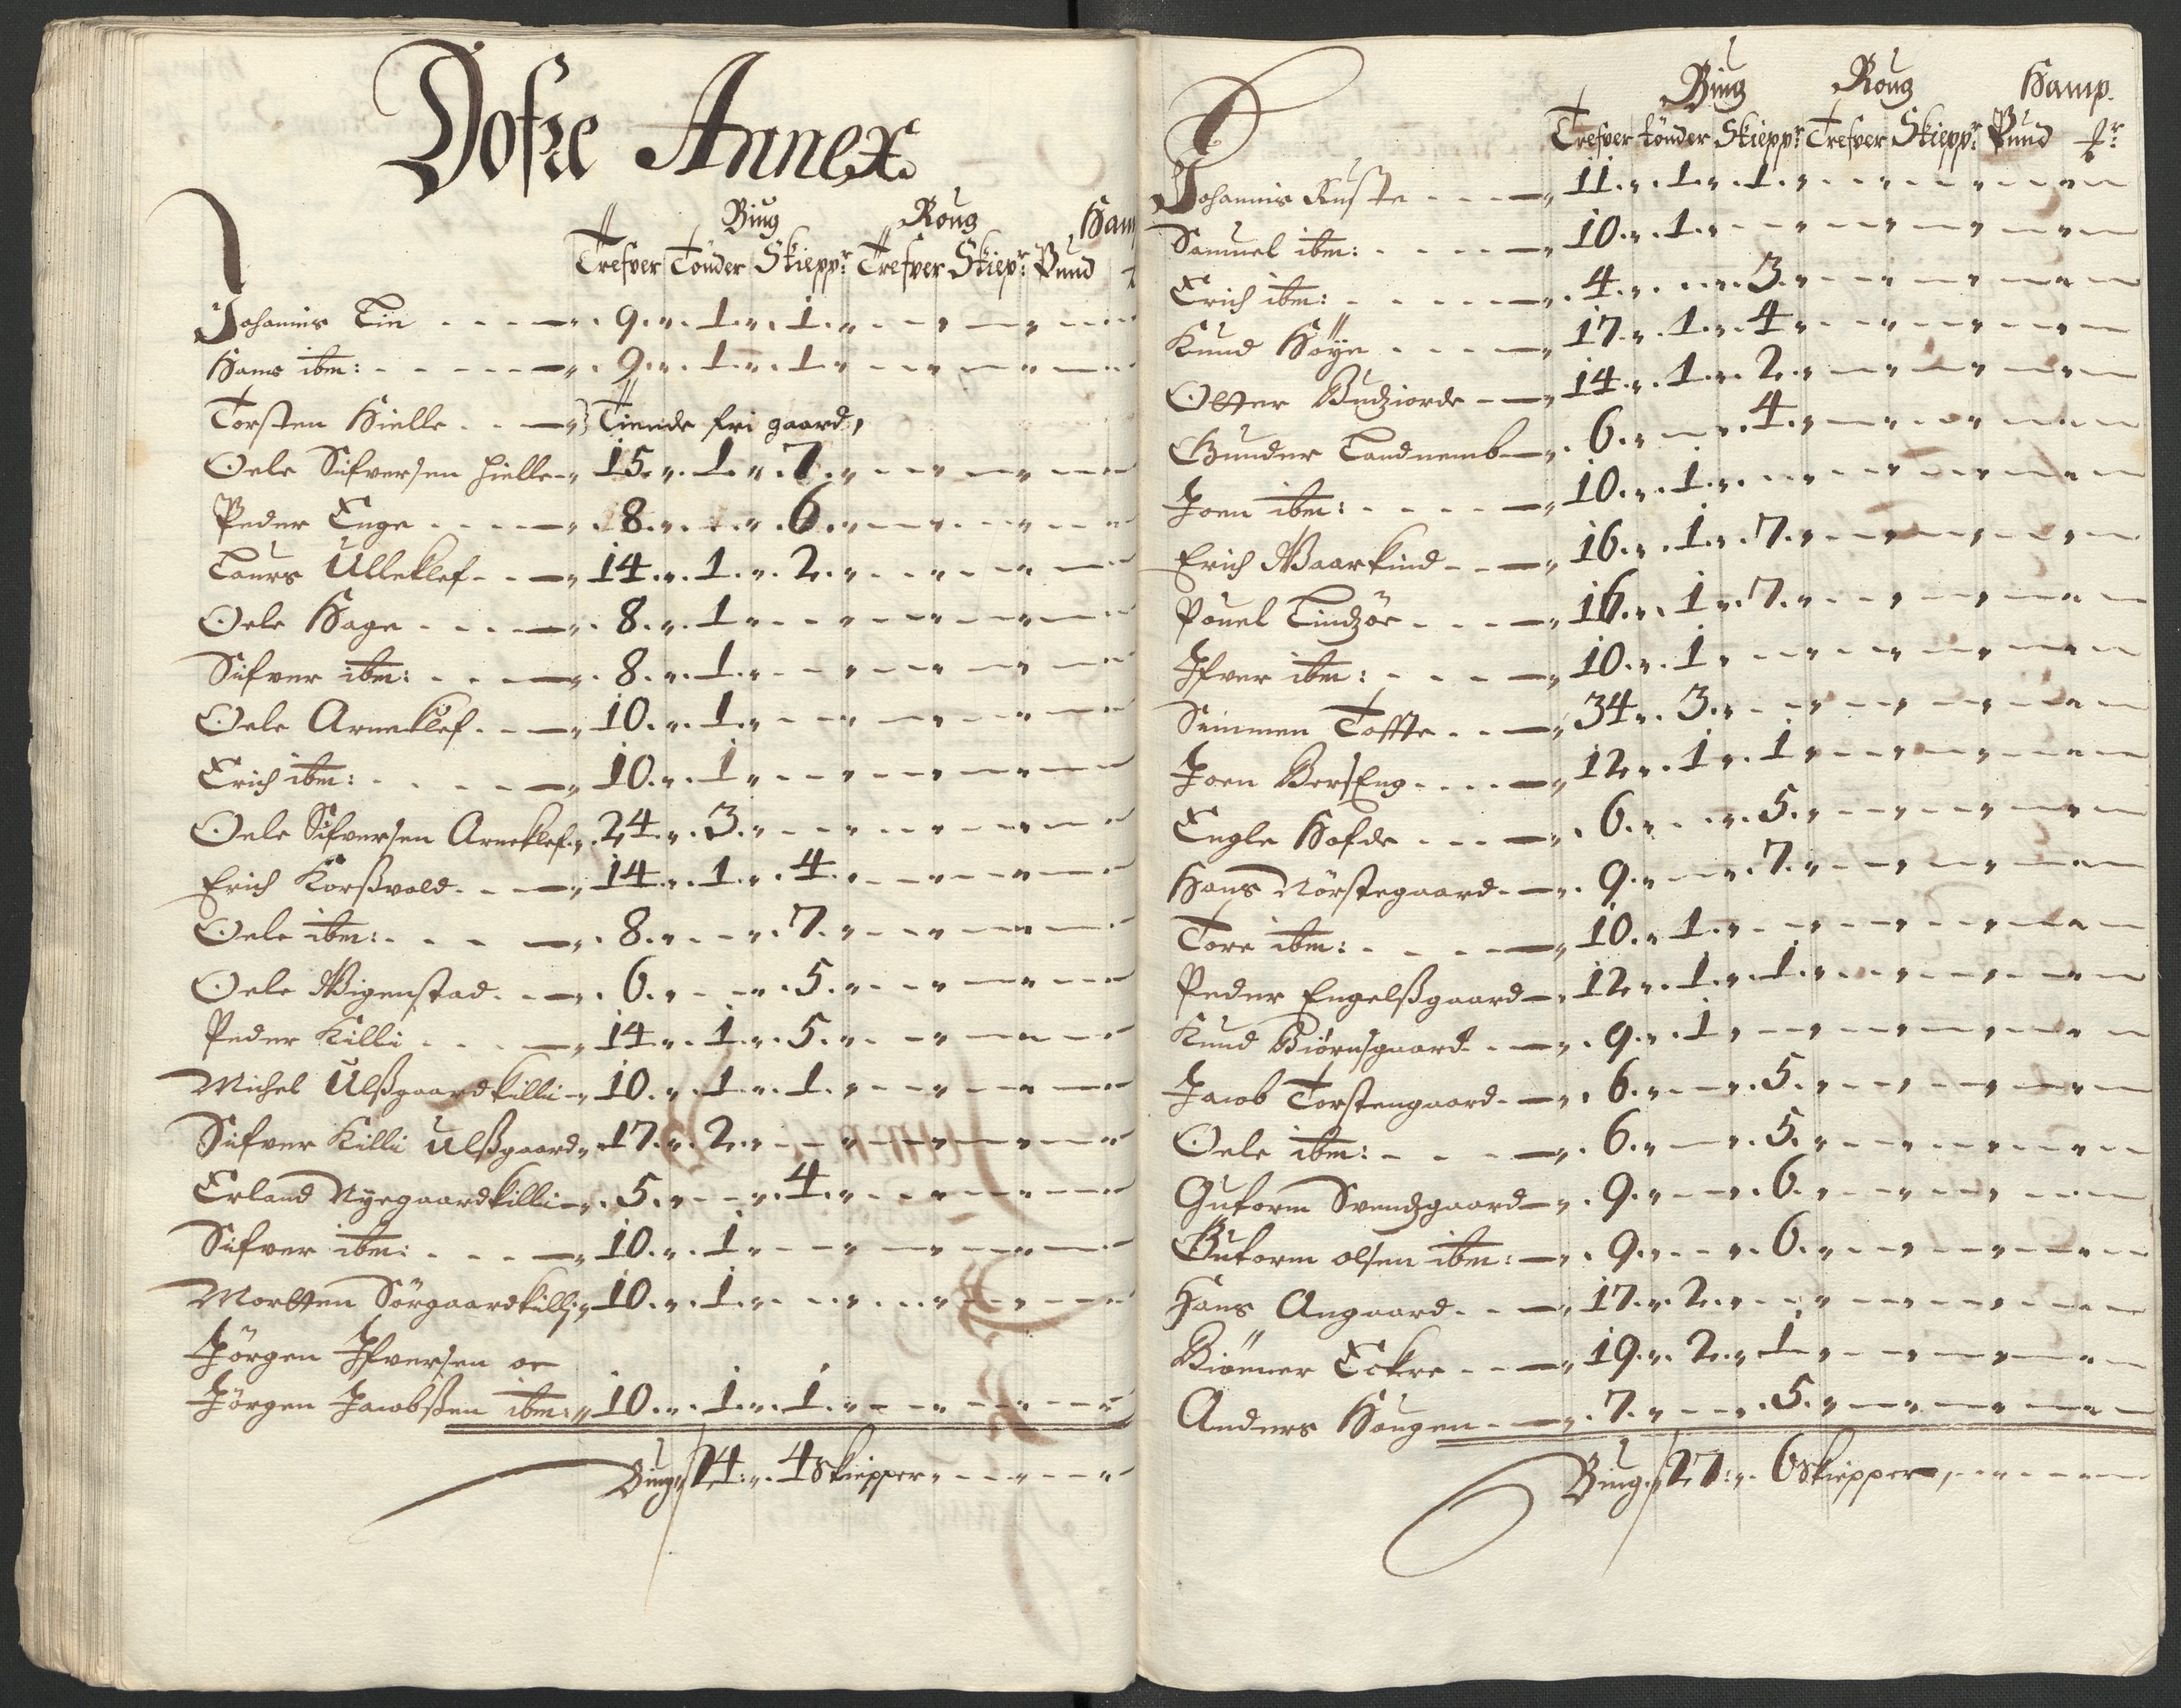 Dofre Annex
Biug Roug Ham
Trefver Tønder Skiepp: Trefver Skiep: Pund
Johannis Lin 9 1 1
Hans ibm: 9 1 1
Torsten Hielle Tiende fri gaard
Oele Sifversen Hielle 15 1 7
Peder Enge 8 6
Laurs Ulleklef 14 1 2
Oele Hage 8 1
Sifver ibm: 8 1
Oele Arneklef 10 1
Erich ibm: 10 1
Oele Sifversen Arneklef 24 3
Erich Korßvold 14 1 4
Oele ibm: 8 7
Oele Wigenstad 6 5
Peder Killi 14 1 5
Michel Ulßgaardkilli 10 1 1
Sifver Killi Ulßgaard 17 2
Erland Nyegaardkilli 5 4
Sifver ibm: 10 1
Mortten Sørgaardkilli 10 1
Jørgen Ifversen oe
Jørgen Jacobßen ibm: 10 1 1
Biug 24 4 Skiepper
Biug Roug Hamp.
Trefver tønder Skiepp: Trefver Skiepp: Pund
Johannis Ruste 11 1 1
Samuel ibm: 10 1
Erich ibm: 4 3
Knud Høye 17 1 4
Otter Budziorde 14 1 2
Gunder Landnemb 6 4
Joen ibm: 10 1
Erich Waarkind 16 1 7
Pouel Lindzøe 16 1 7
Ifver ibm: 10 1
Simmen Toffte 34 3
Joen BersEng 12 1 1
Engle Hofde 6 5
Hans Nørstegaard 9 7
Tore ibm: 10 1
Peder Engelßgaard 12 1 1
Knud Biørnsgaard 9 1
Jacob Torstengaard 6 5
Oele ibm: 6 5
Gutorm Svendzgaard 9 6
Gutorm olsen ibm: 9 6
Hans Angaard 17 2
Biønner Eckre 19 2 1
Anders Hougen 7 5
Biug 27 6 Skiepper